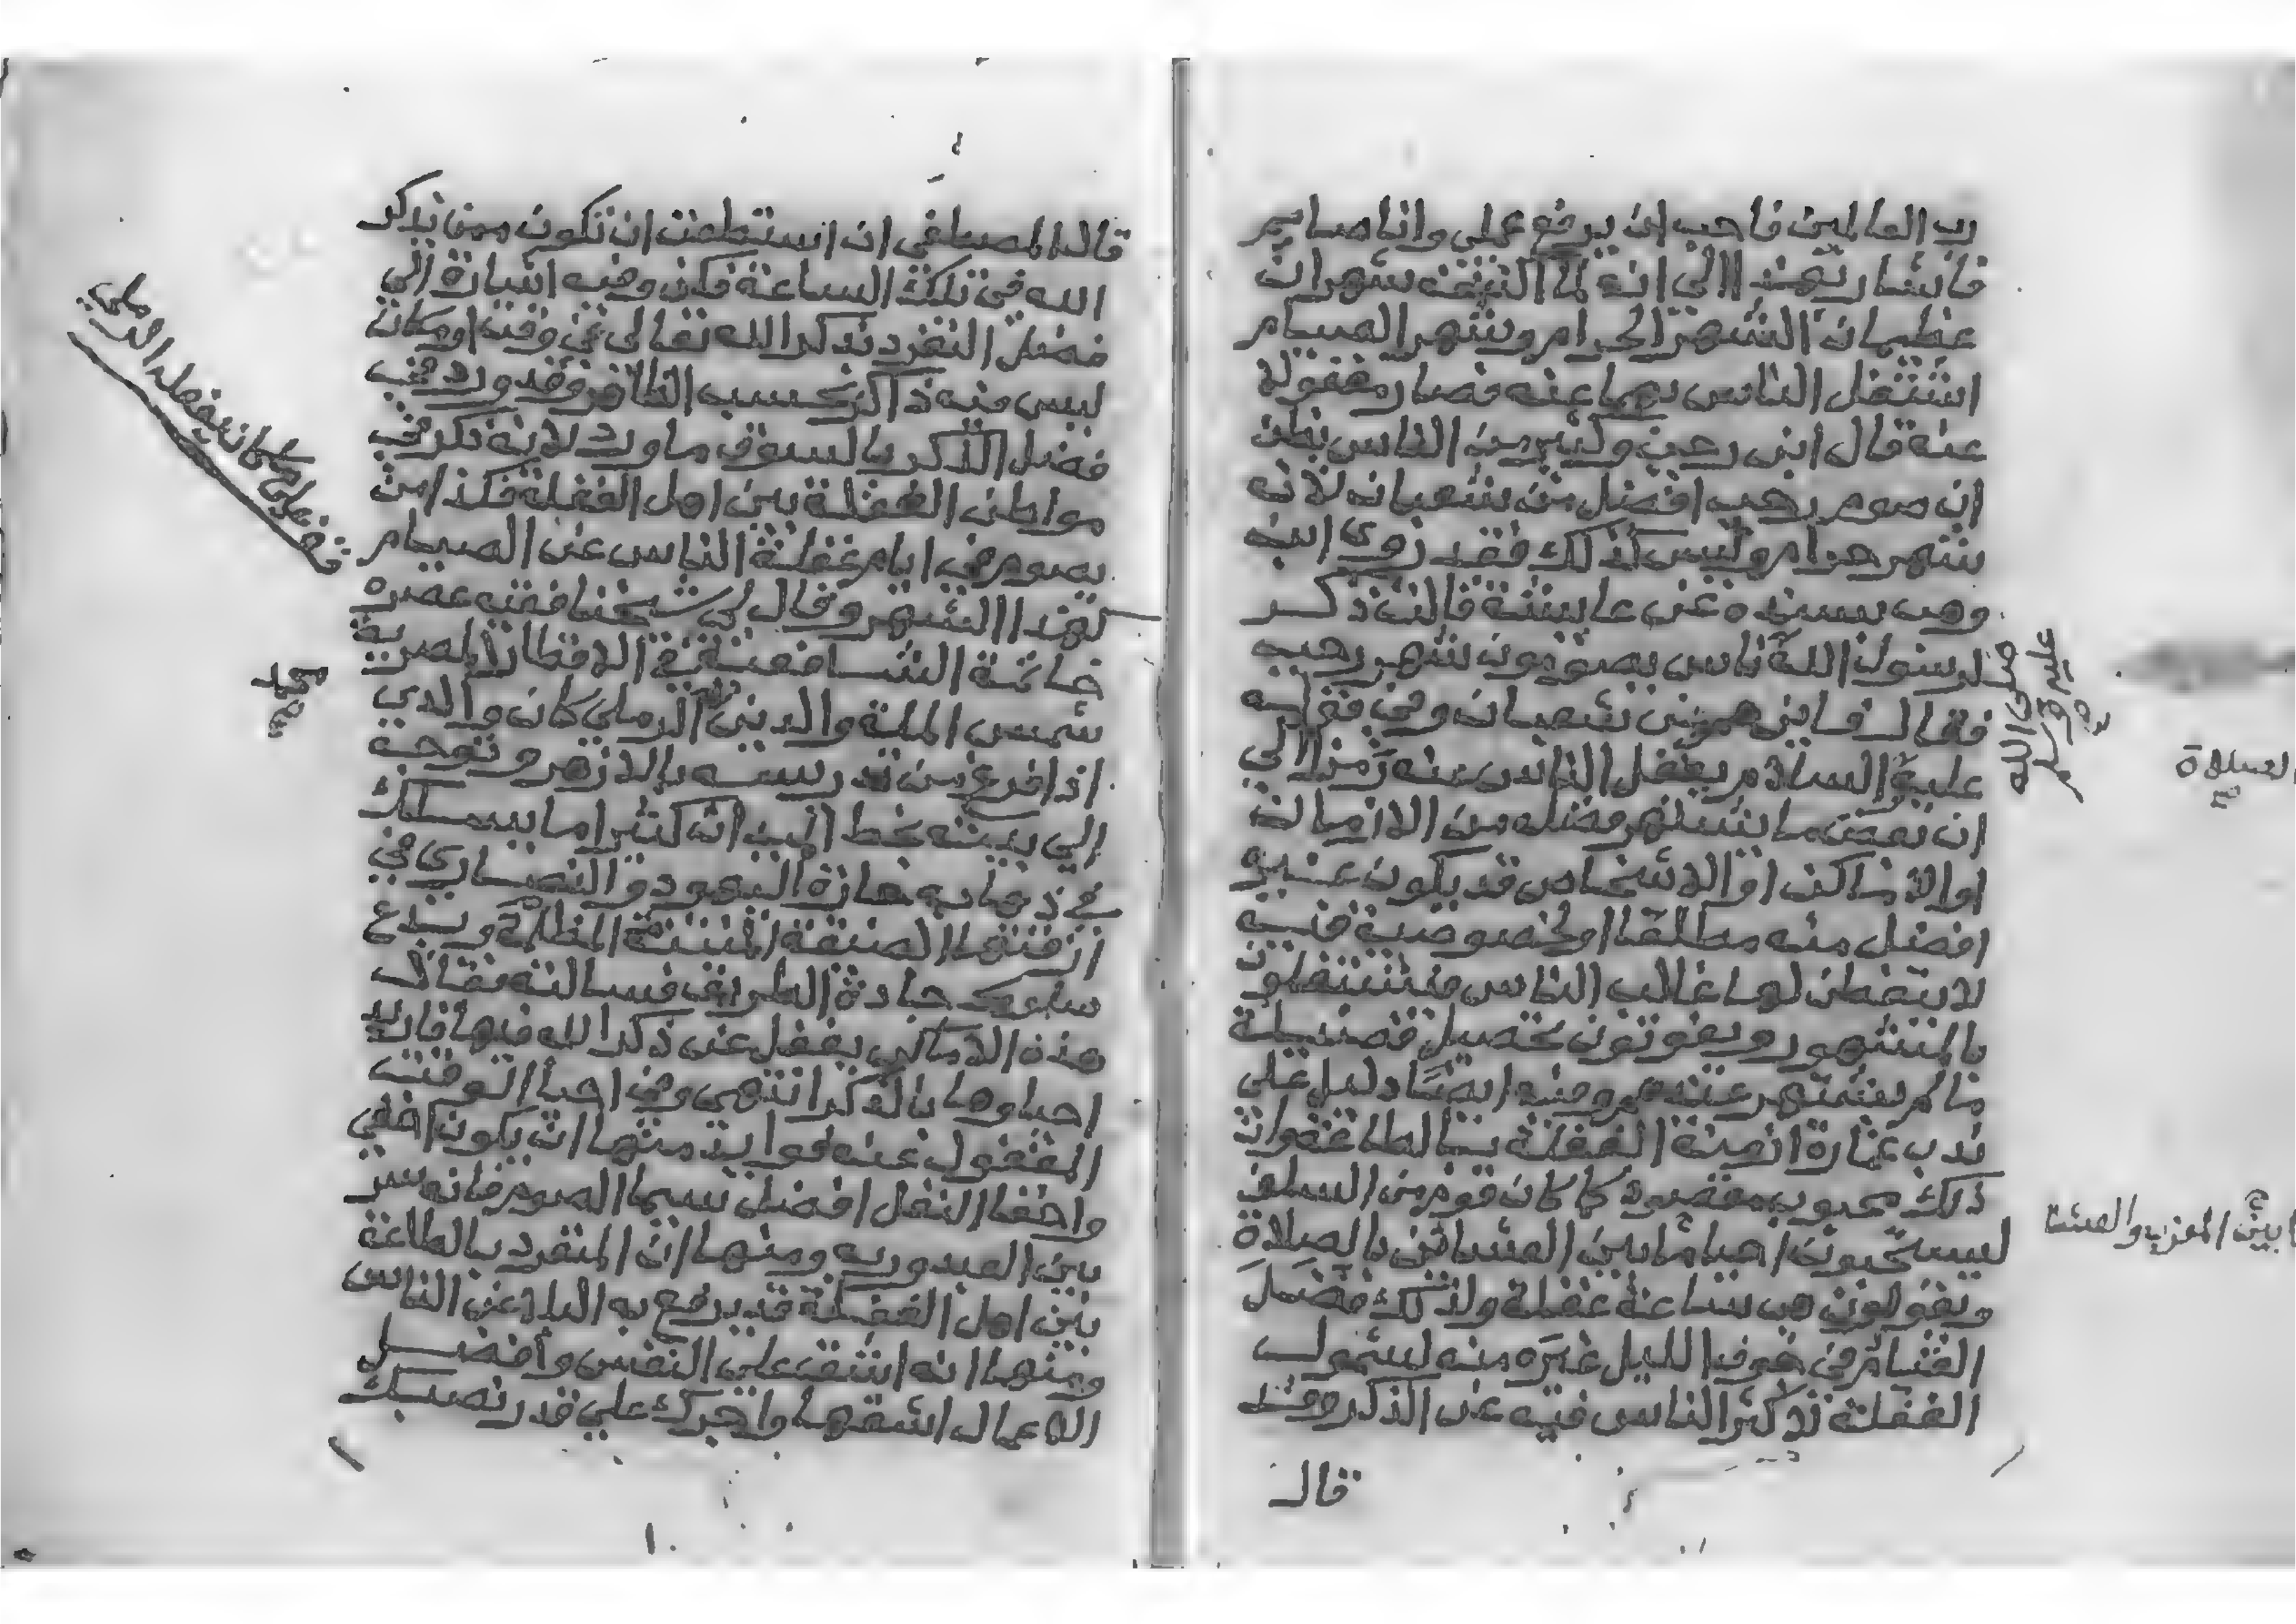 رب العالمين فاحب ان يرفع عملي وانا صايم
فاشار بهذا الى انه لما اكتنفه شهران
عظيمان الشهر الحرام وشهر الصيام
اشتغل الناس بهما عنه فصار مغفولا
عنه قال ابن رجب وكثير من الناس يظن
ان صوم رجب افضل من شعبان لانه
شهر حرام وليس كذلك فقد روى ابن
وهب بسنده عن عايشة قالت ذكر
لرسول الله ناس يصومون شهر رجب
صلى الله
عليه وسلم
صح
فقال فاين هم من شعبان وفي قوله
عليه السلام يغفل الناس عنه رمز الى
الصلاة
ان بعض ما يشتهر فضله من الازمان
او الاماكن او الاشخاص قد يكون غيره
افضل منه مطلقا او لخصوصية فيه
لا يتفطن لها غالب الناس فيشتغلون
بالمشهور ويفوتون تحصيل فضيلة
ما لم يشتهر عندهم وفيه ايضا دليل على
ندب عمارة ازمنة الغفلة بالطاعة وان
ذلك محبوب مقصود كما كان قوم من السلف
يستحبون احيا ما بين العشائين بالصلاة
ما بين المغرب والعشا
ويقولون هي ساعة غفلة ولذلك فضل
القيام في جوف الليل غيره منه لشمول
الغفلة لاكثر الناس فيه عن الذكر وقد
قال
قال المصطفى ان استطعت ان تكون ممن يذكر
الله في تلك الساعة فكن وفيه اشارة الى
فضل التفرد بذكر الله تعالى في وقت او مكان
ليس فيه ذاكر بحسب الظاهر وقد ورد في
فضل الذكر بالسوق ما ورد لانه ذكر في
مواطن الغفلة بين اهل الغفلة فكذا من
يصوم في ايام غفلة الناس عن الصيام
لهذا الشهر وقال لي شيخنا فقيه عصره
قف على ما كان يفعله الرملي
خاتمة الشافعية في الاقطار المصرية
شمس الملة والدين الرملي كان والدي
محمد
صح
اذا فرغ من تدريسه بالازهر وتوجه
الى بيته بخط كثيرا ما يسلك
في ذهابه حارة اليهود والنصارى في
ازقتها الضيقة المنتنة المظلمة ويدع
سلوك جادة الطريق فسالته فقال
هذه الاماكن يغفل عن ذكر الله فيها فاريد
احياوها بالذكر انتهى وفي احيا الوقت
المغفول عنه فوايد منها ان يكون اخفى
واخفا النفل افضل سيما الصوم فانه سر
بين العبد وربه ومنها ان المنفرد بالطاعة
بين اهل الغفلة قد يرفع به البلا عن الناس
ومنها انه اشق على النفس وافضل
الاعمال اشقها واجرك على قدر نصبك